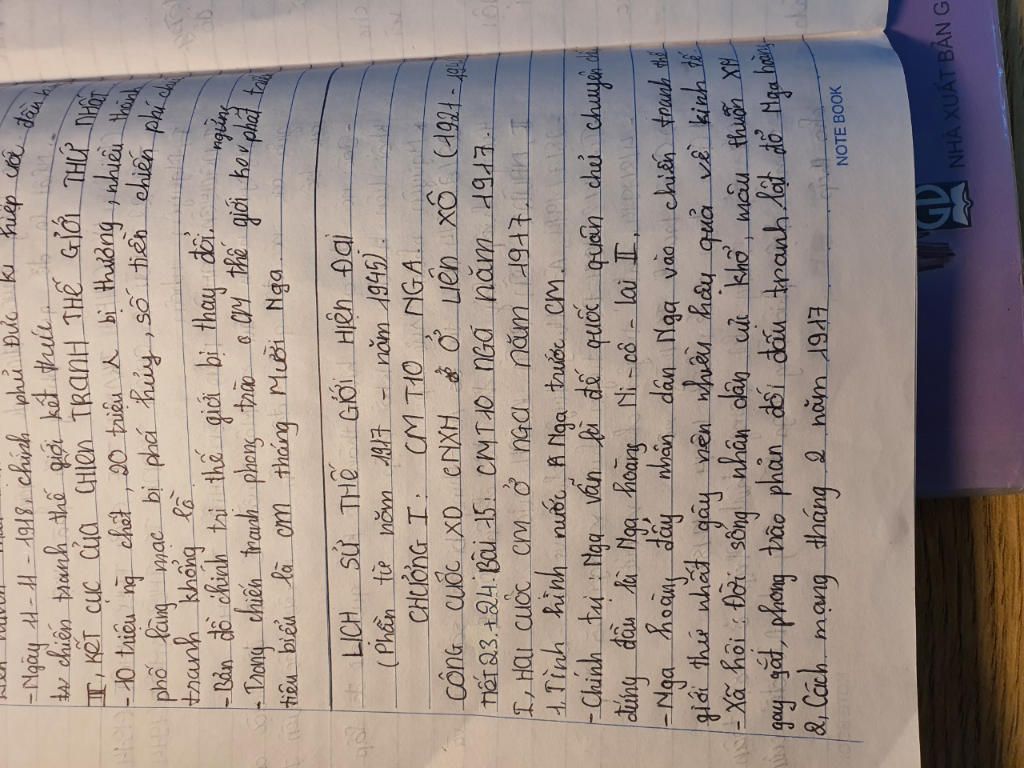 - Ngày 11-11-1918 chính phủ Đức kí hiệp
chiến tranh thế giới kết thúc.
III, KẾT CỤC CỦA CHIẾN TRANH THẾ GIỚI THỨ NHẤT
- 10 triệu ng chết, 20 triệu bị thương, nhiều thành
phố làng mạc bị phá hủy, số tiền chiến phí
tranh khổng lồ.
- Bản đồ chính trị thế giới bị thay đổi.
- Trong chiến tranh phong trào CM thế giới ko ngừng phát
tiêu biểu là cm tháng Mười Nga.
LỊCH SỬ THẾ GIỚI HIỆN ĐẠI
(Phần từ năm 1917 - năm 1945)
CHƯƠNG I. CM T10 NGA.
CÔNG CUỘC XD CNXH Ở LIÊN XÔ (1921-
TIẾT 23+24: Bài 15: CMT10 NGA NĂM 1917.
I, Hai cuộc CM ở nga năm 1917.
1. Tình hình nước Nga trước CM.
- Chính trị: Nga vẫn là đế quốc quân chủ chuyên
đứng đầu là Nga hoàng Ni-cô-lai II.
- Nga hoàng đẩy nhân dân Nga vào chiến tranh thế
giới thứ nhất gây nên nhiều hậu quả về kinh tế
- Xã hội: Đời sống nhân dân cực khổ, mâu thuẫn XH
gay gắt, phong trào phản đối đấu tranh lật đổ Nga hoàng.
2, Cách mạng tháng 2 năm 1917
NOTE BOOK
NHÀ XUẤT BẢN G
GD